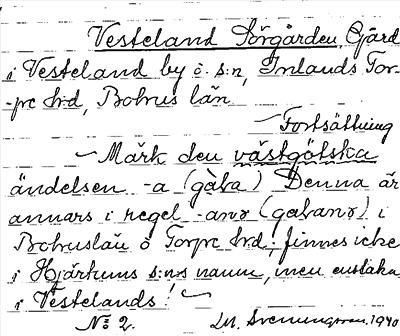 Vesteland Sörgården, Gård
i Vesteland by o. s:n, Inlands Tor-
-pe h:d, Bohus län
Fortsättning
Märk den västgötska
ändelsen -a (gàba) Denna är
annars i regel -anə (gabanə) i
Bohuslän o Torpe h:d; finnes icke
i Hjärtums s:ns namn, men enstaka
i Vestelands!
No 2.
1940